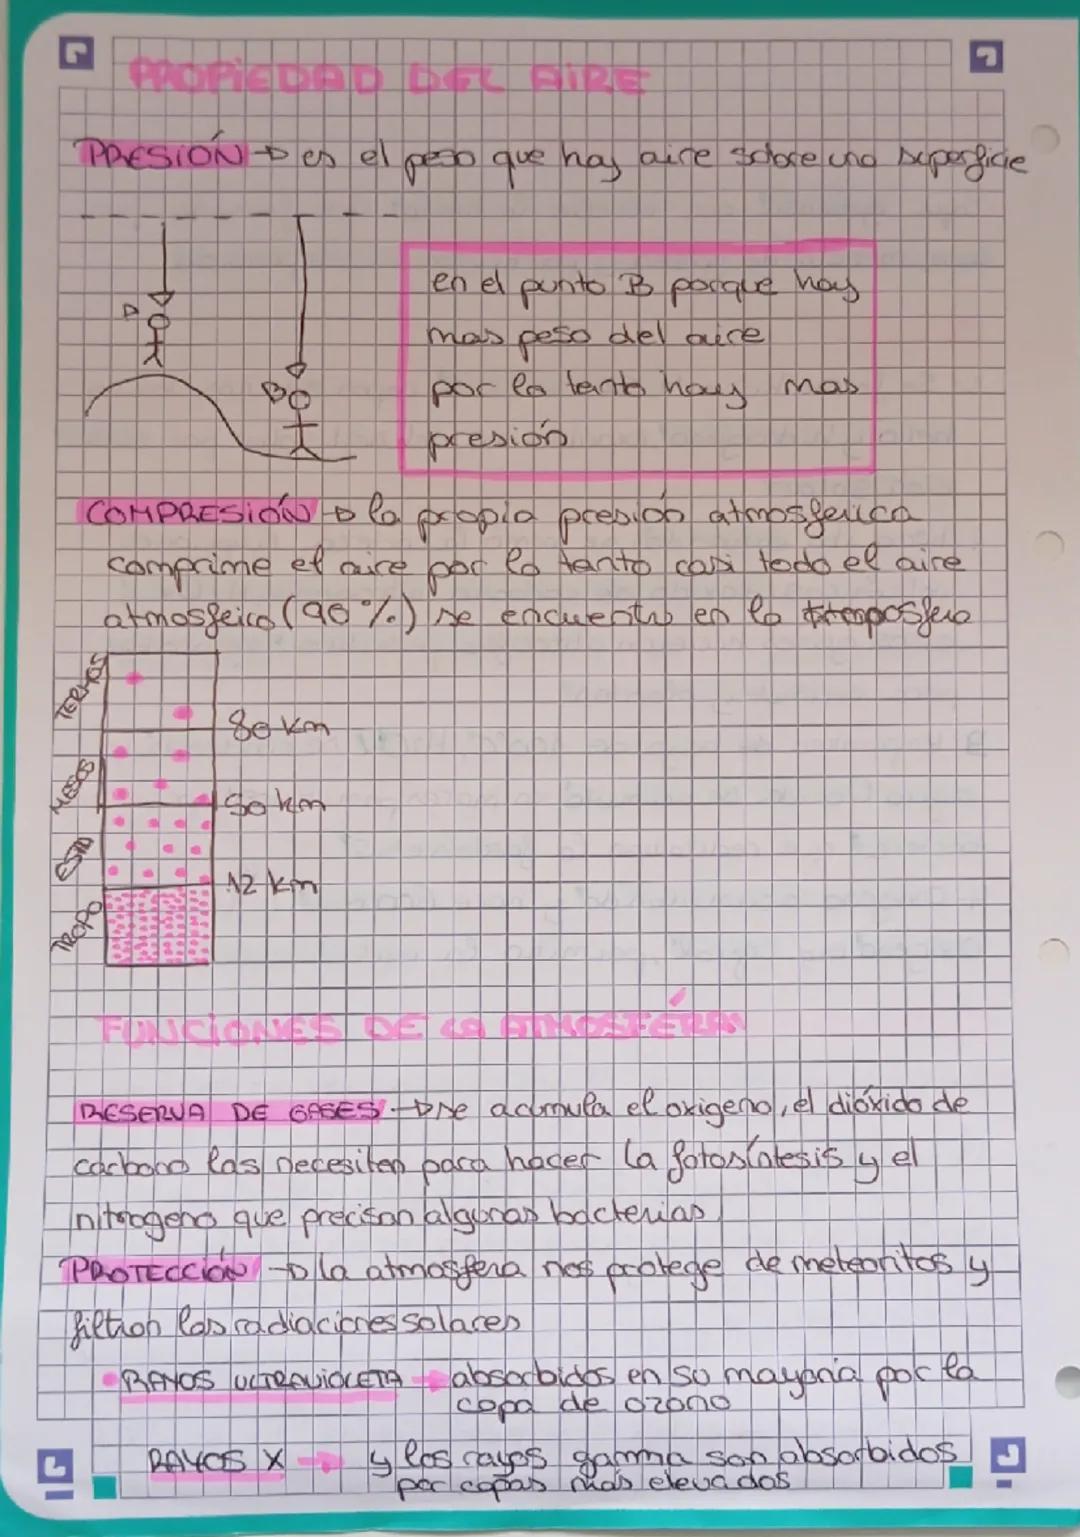 PROPIEDAD DEL AIRE
PRESIÓN → es el peso que hay aire sobre una superficie
A
B
en el punto B porque hay
mas peso del aire
por lo tanto hay mas
presión
COMPRESIÓN → la propia presión atmosferica
comprime el aire por lo tanto casi todo el aire
atmosfeico (90%) se encuentra en la
TERMOS
80 km
MESOS
50 km
ESTRO
12 km
TROPO
FUNCIONES DE LA ATMOSFÉRA
RESERVA DE GASES → se acumula el oxigeno, el dióxido de
carbono las necesiten para hacer la fotosíntesis y el
nitrogeno que precisan algunas bacterias
PROTECCIÓN → la atmosfera nos protege de meteoritos y
filtran las radiaciones solares
• RAYOS ULTRAVIOLETA → absorbidos en su mayoria por la
capa de ozono
RAYOS X → y los rayos gamma son absorbidos
por capas más elevadas